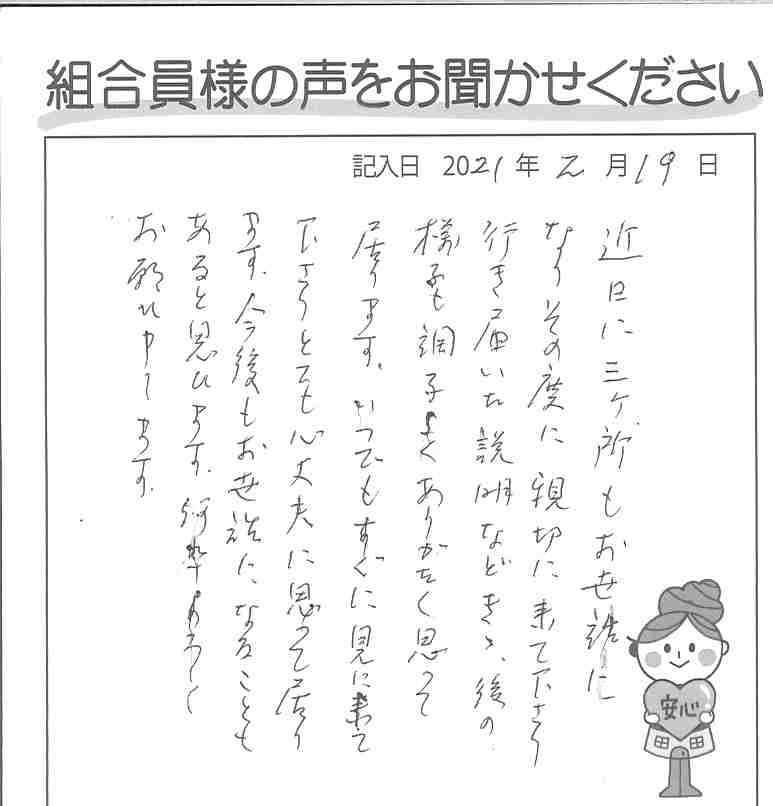 組合員様の声をお聞かせください
記入日 2021年2月19日
近日に三ケ所もお世話に
なりその度に親切に来て下さり
行き届いた説明などきゝ、後の
様子も調子よくありがたく思って
居ります。いつでもすぐに見に来て
下さりとても心丈夫に思って居り
ます。今後もお世話になることも
あると思ひます。何卒よろしく
お願ひ申します。
安心